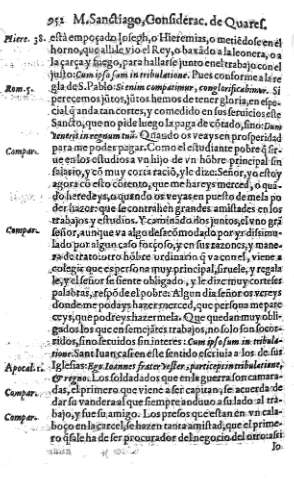 952 M. Sanctiago, Considerac. de Quares.
Hiere. 38. está empoçado Ioseph, o Hieremias, o metiēdose en el
horno, que allì le vio el Rey, o baxādo a la leonera, o a
la çarça y fuego, para hallarse junto en el trabajo con el
justo: Cum ipso sum in tribulatione. Pues conforme a la re
Rom. 5. gla de S. Pablo: Si enim compatimur, conglorificabimur. Si
perecemos jūtos, jūtos hemos de tener gloria, en espe
cial q̄ anda tan cortes, y comedido en sus servicios este
Sancto, que no pide luego la paga de cōtado, sino: Dum
veneris in regnum tuū. Quando os veays en prosperidad
Compar. para me poder pagar. Como el estudiante pobre q̄ sir
ue en los estudios a vn hijo de vn hōbre principal sin
salario, y cō muy corta raciō, y le dize: Señor, yo estoy
agora cō esto cōtento, que me hareys merced, o quā
do heredeys, o quando os veays en puesto de me la po
der hazer: que se contrahen grandes amistades en los
trabajos y estudios. Y caminādo los juntos, el vno grā
señor, aunque va algo desacōmodado por yr dissimu
lado por algun caso forçoso, y en sus razones, y mane
ra de trato otro hōbre ordinario q̄ va con el, viene a
colegir que es persona muy principal, siruele, y regala
le, y el señor se siente obligado, y le dize muy corteses
palabras, respōde el pobre: Algun dia señor os vereys
donde me podays hazer merced, que persona me pare
ceys, que podreys hazermela. Que quedan muy obli
gados los que en semejātes trabajos, no solo son socor
ridos, sino seruidos sin interes: Cum ipso sum in tribula
tione. Sant Iuan casi en este sentido escriuia a los de sus
Apocal. 1. Iglesias: Ego Ioannes frater vester, particeps in tribulatione,
& regno. Los soldados que en la guerra son camara-
Compar. das, el primero que viene a ser capitan, se acuerda de
dar su vandera al que siempre anduuo a su lado al tra
bajo, y fue su amigo. Los presos que estan en vn cala-
Compar. boço en la carcel, se hazen tanta amistad, que el prime-
ro q̄ sale ha de ser procurador del negocio del otro: assi
lo